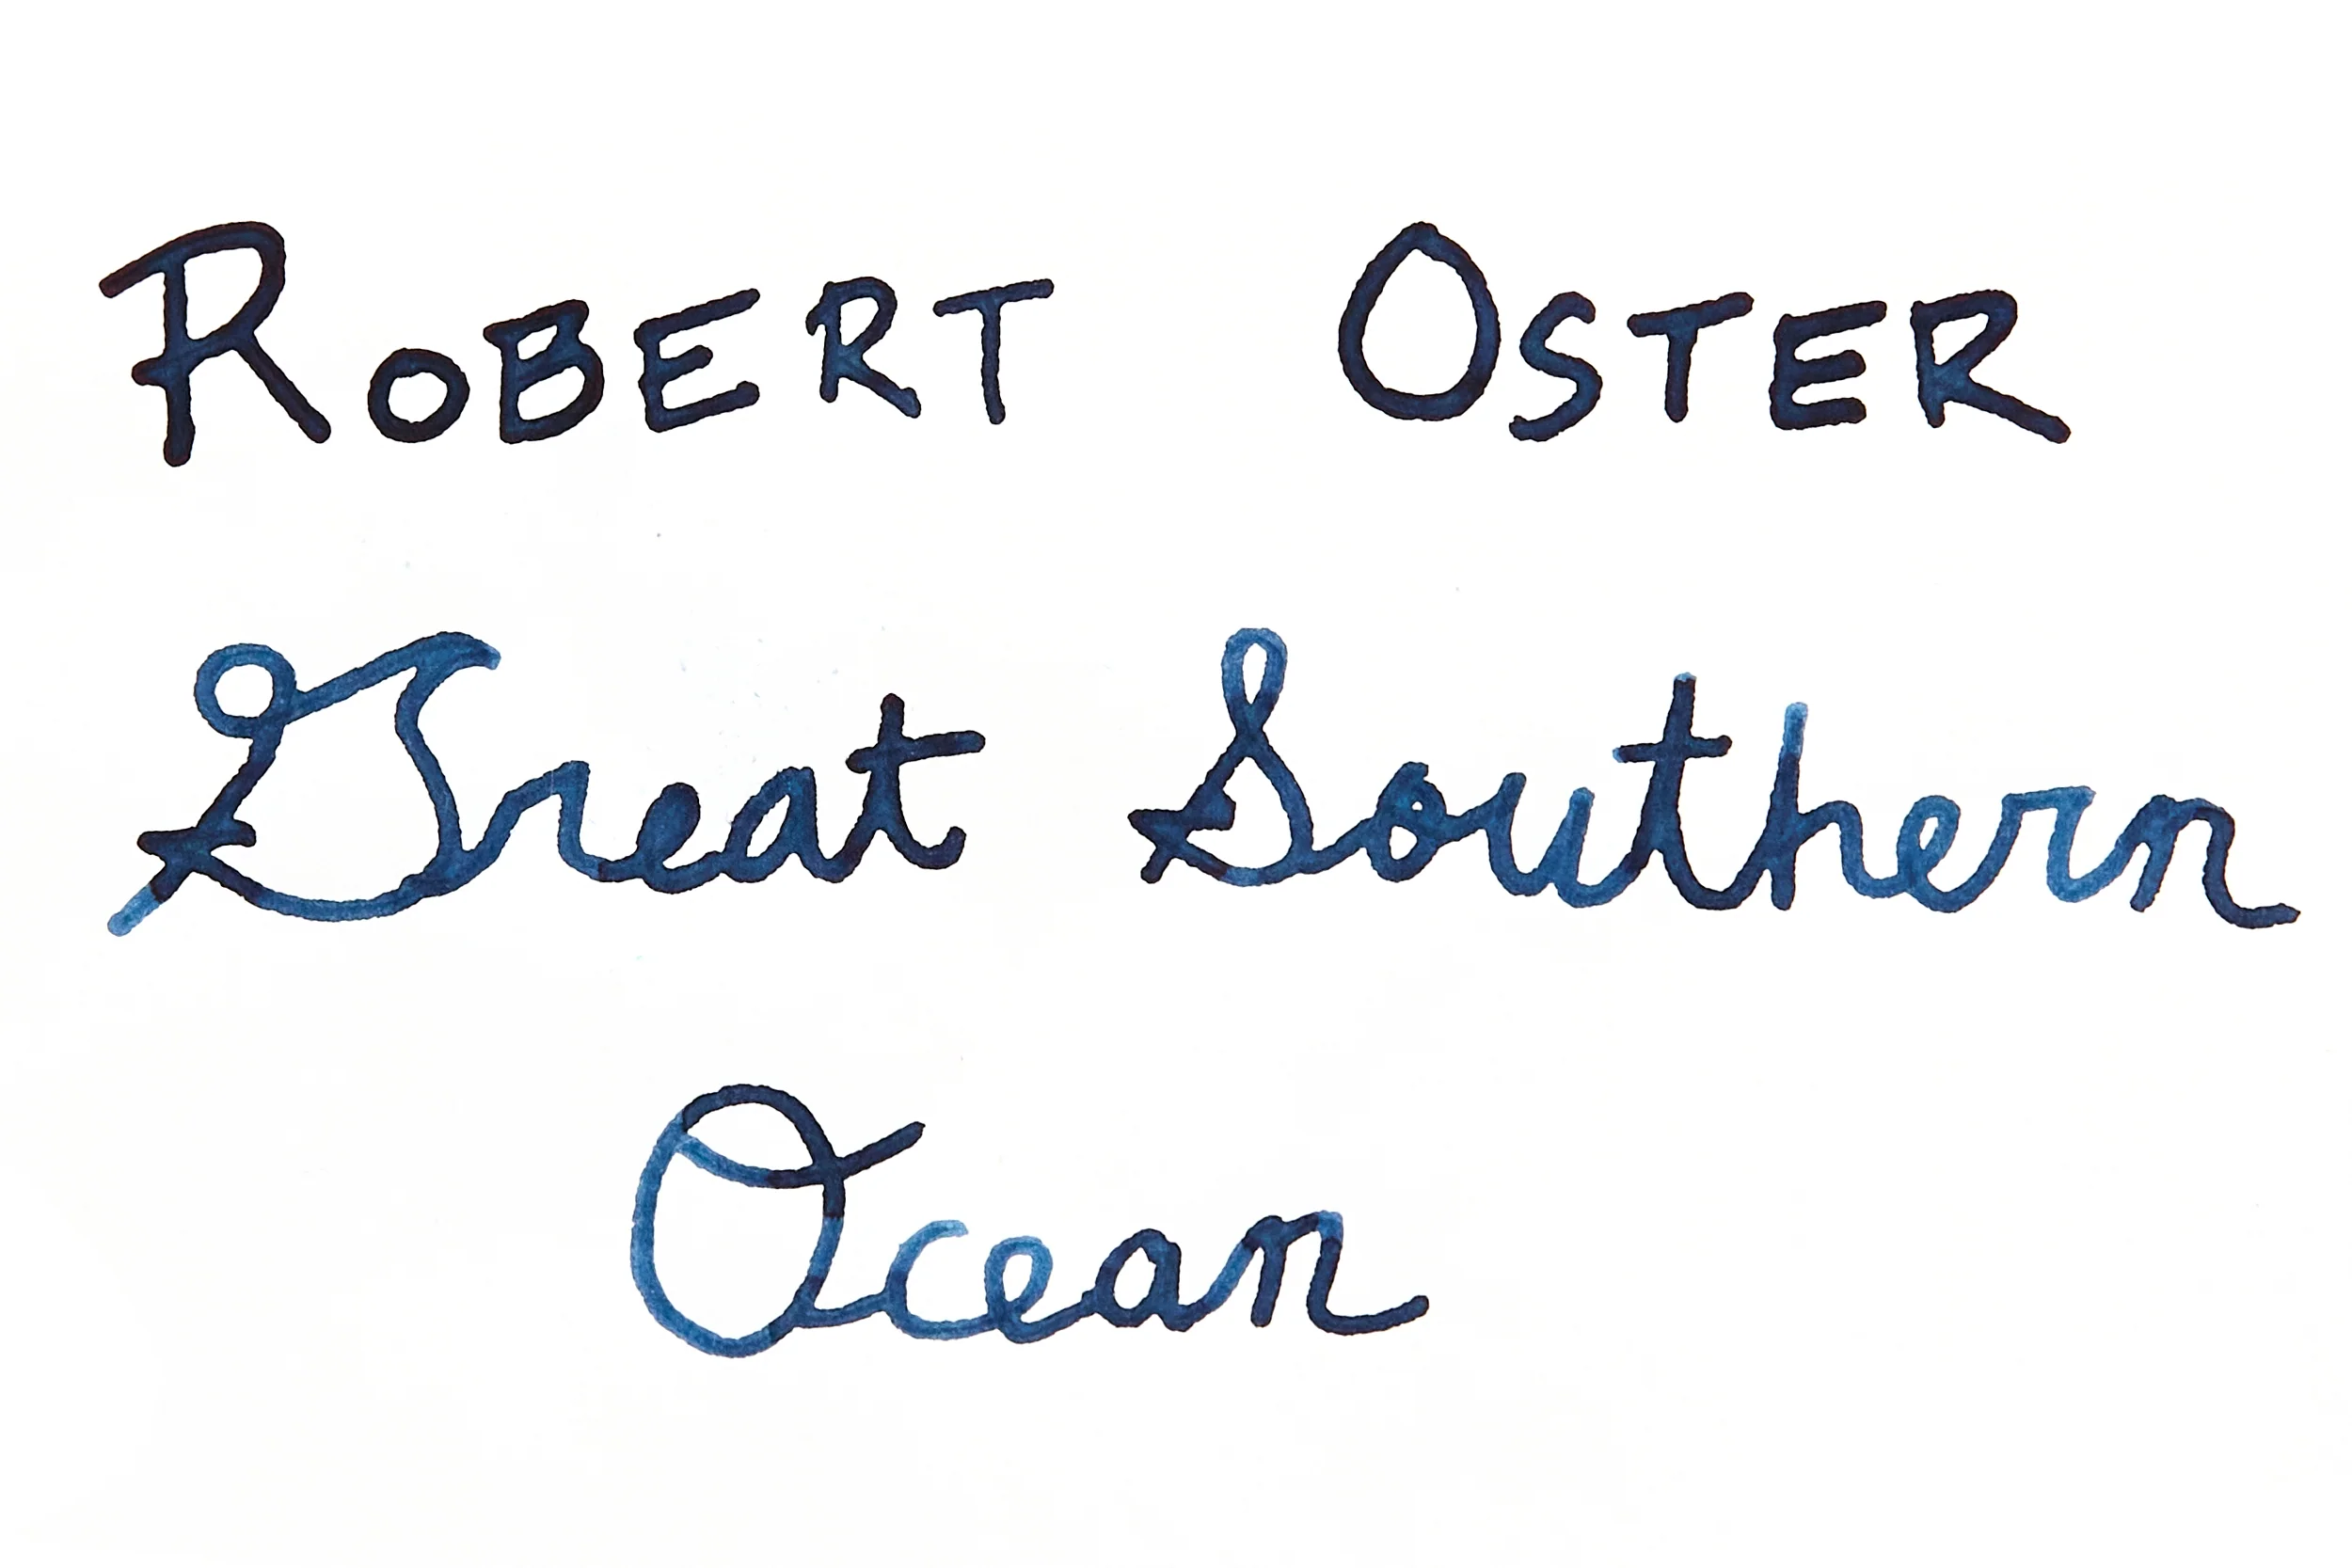 ROBERT OSTER
Great Southern
Ocean